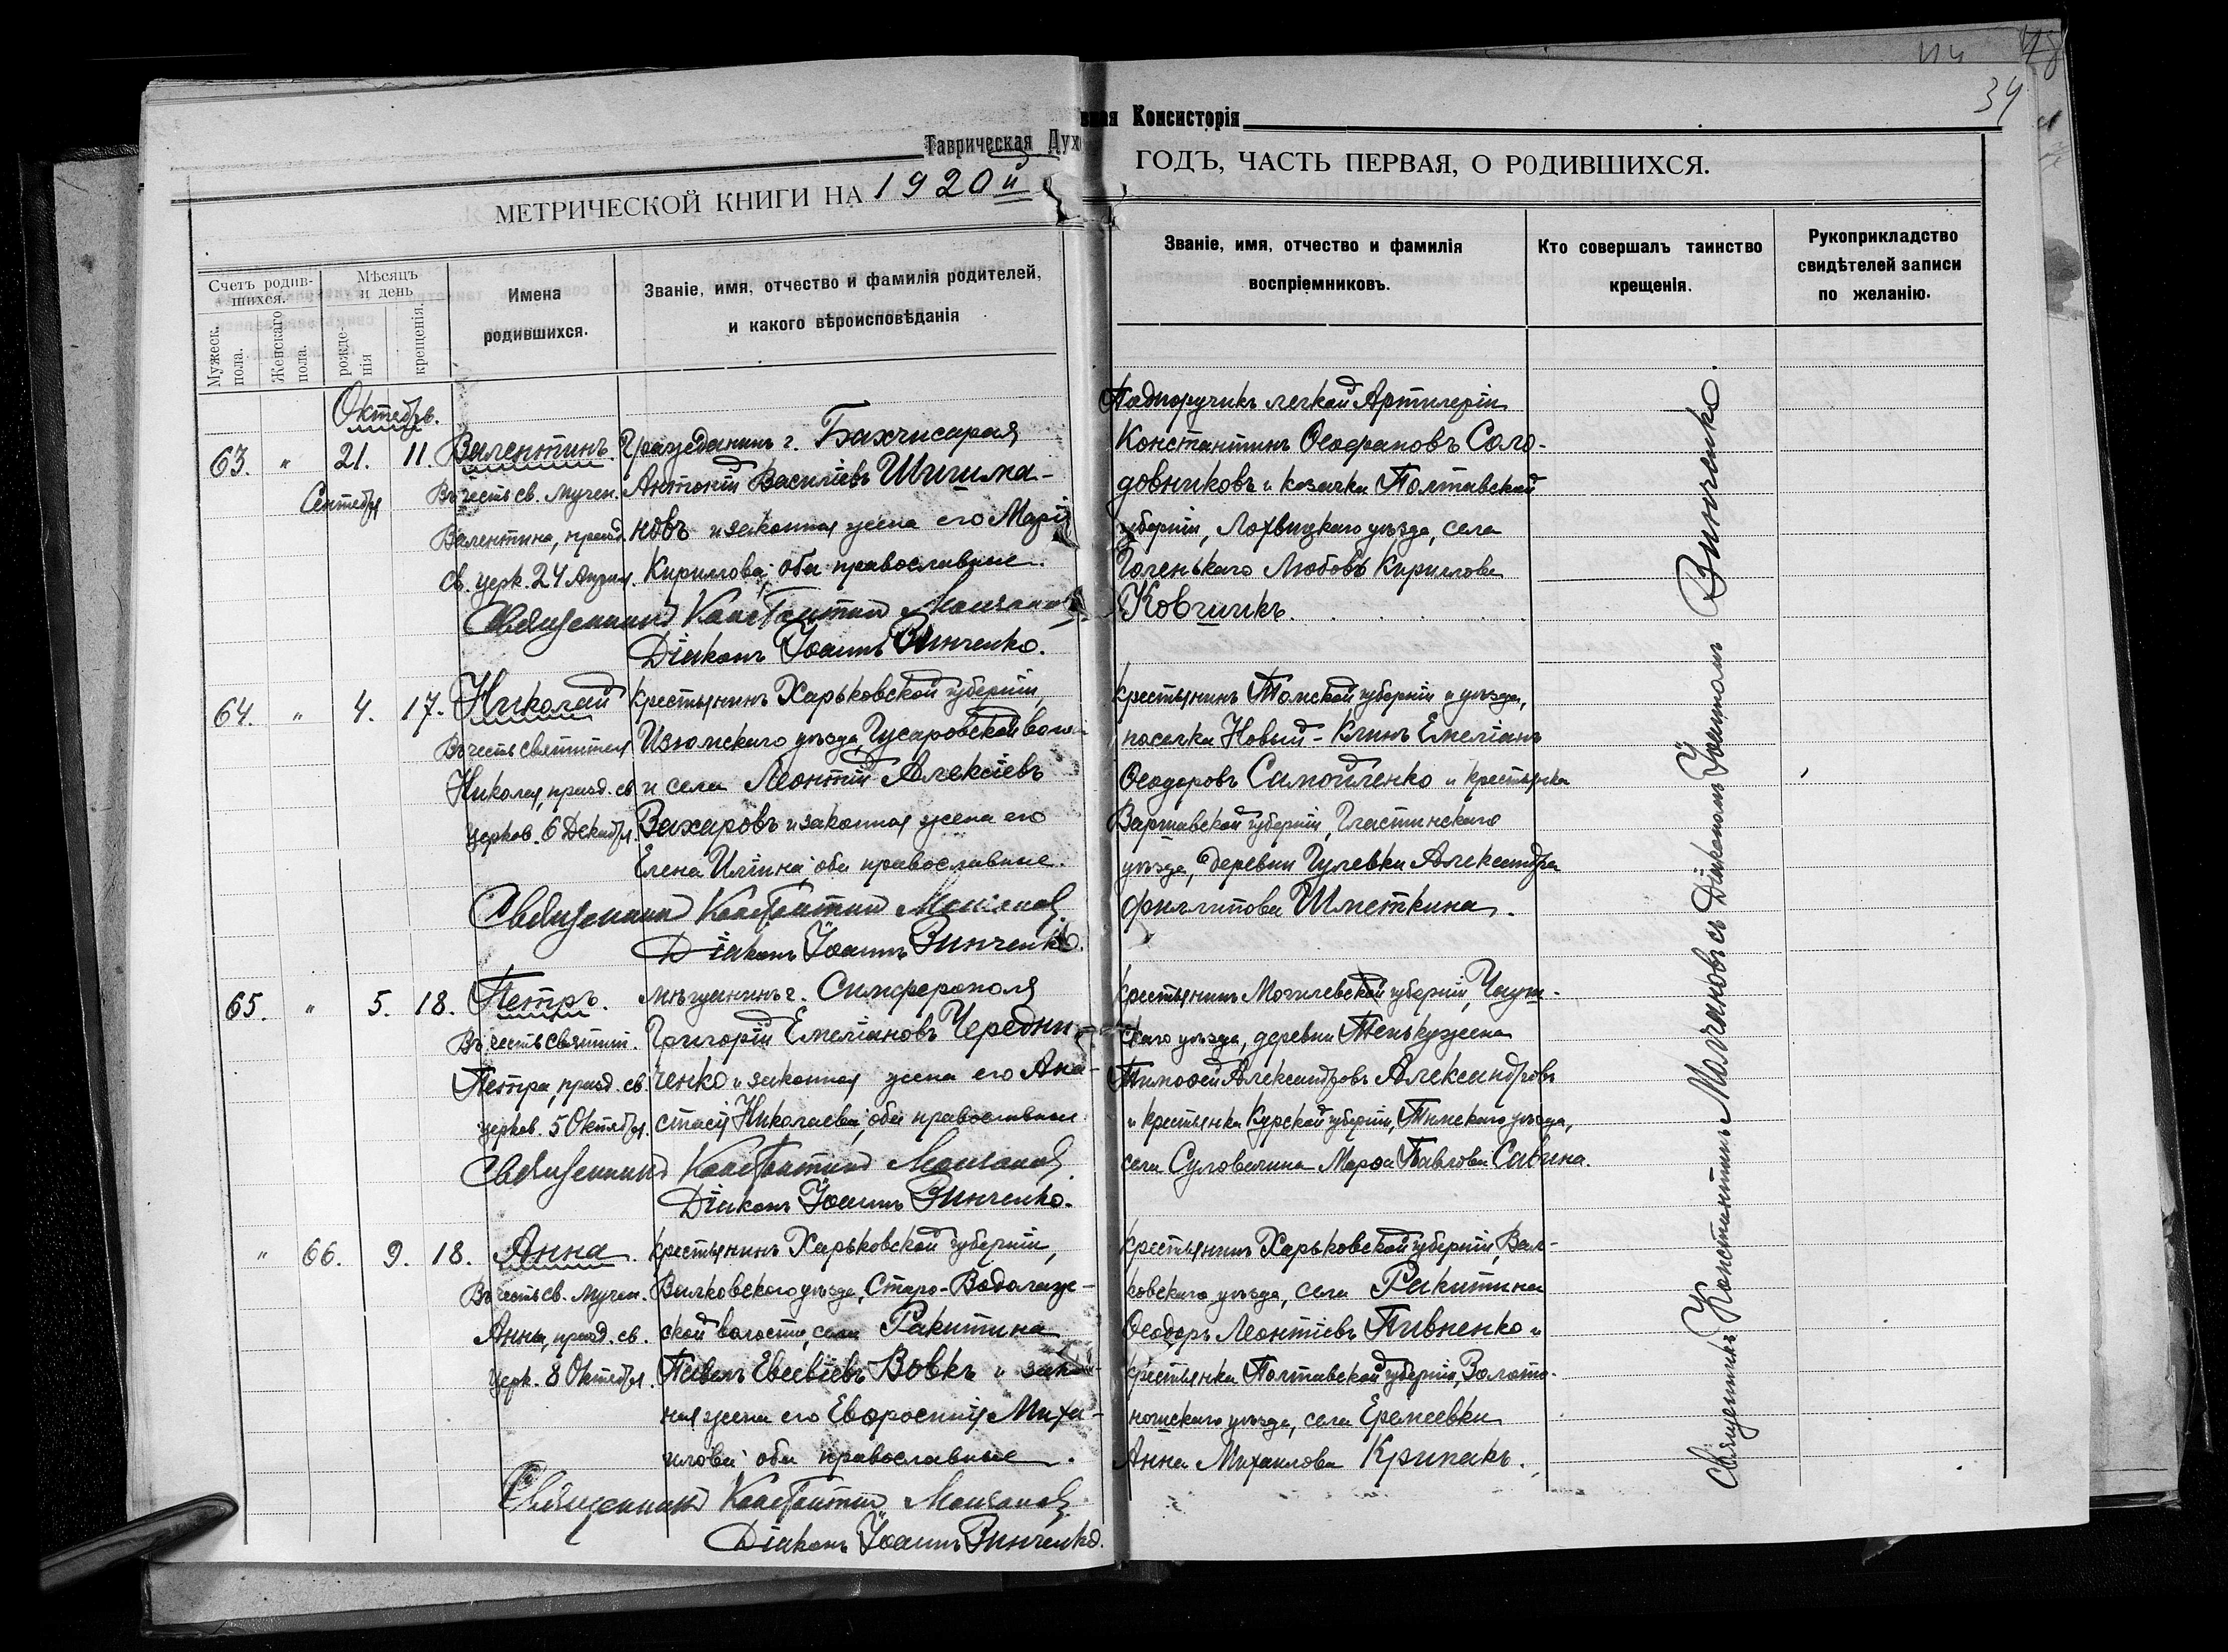 114 48
34
Таврическая Духовная Консисторія
МЕТРИЧЕСКОЙ КНИГИ НА 1920й ГОДЪ, ЧАСТЬ ПЕРВАЯ, О РОДИВШИХСЯ.
Счетъ родив-
шихся.
Мужеск. пола.
Женскаго пола.
Мѣсяцъ
и день
рожде-
нія
крещенія.
Имена
родившихся.
Званіе, имя, отчество и фамилія родителей,
и какого вѣроисповѣданія
Званіе, имя, отчество и фамилія
воспріемниковъ.
Кто совершалъ таинство
крещенія.
Рукоприкладство
свидѣтелей записи
по желанію.
Октябрь.
63. " 21. 11. Валентинъ.
Сентября
Въ честь св. мучен.
Валентина, празд.
св. церк. 24 Апрѣля.
Гражданинъ г. Бахчисарая
Антоній Василіевъ Шишма-
новъ и законная жена его Марія
Кирилова, оба православные.
Священникъ Константинъ Молчановъ
Діаконъ Іоаннъ Винченко.
Подпоручикъ легкой Артилеріи
Константинъ Ѳеофановъ Соло-
довниковъ и козачка Полтавской
губерніи, Лохвицкаго уѣзда, села
Голенькаго Любовь Кирилова
Ковшикъ.
64. " 4. 17. Николай
Въ честь святителя
Николая, празд. св.
церков. 6 Декабря.
Крестьянинъ Харьковской губерніи,
Изюмскаго уѣзда, Гусаровской воло-
и села Леонтій Алексіевъ
Захаровъ и законная жена его
Елена Иліина, оба православные.
Священникъ Константинъ Молчановъ
Діаконъ Іоаннъ Винченко.
Крестьянинъ Томской губерніи и уѣзда,
поселка Новый-Клинъ Емеліанъ
Ѳеодоровъ Самойленко и крестьянка
Варшавской губерніи,
уѣзда, деревни Гулевки Александра
Филлипова Шметкина.
65. " 5. 18. Петръ.
Въ честь святит.
Петра, празд. св.
церков. 5 Октября.
Мѣщанинъ г. Симферополя
Григорій Емеліановъ Черевни-
ченко и законная жена его Ана-
стасія Николаева, оба православные
Священникъ Константинъ Молчановъ
Діаконъ Іоаннъ Винченко.
Крестьянинъ Могилевской губерніи, Чауш-
скаго уѣзда, деревни
Тимоѳей Александровъ Александровъ
и крестьянка Курской губерніи, Тимскаго уѣзда,
села Марѳа Павлова Савина.
" 66. 9. 18. Анна.
Въ честь св. мучен.
Анны, празд. св.
церк. 8 Октября.
Крестьянинъ Харьковской губерніи,
Валковскаго уѣзда, Старо-Водолаж-
ской волости, села Ракитина
Павелъ Евсевіевъ Вовкъ и закон-
ная жена его Евфросинія Миха-
илова, оба православные.
Священникъ Константинъ Молчановъ
Діаконъ Іоаннъ Винченко.
Крестьянинъ Харьковской губерніи, Вал-
ковскаго уѣзда, села Ракитина
Ѳеодоръ Леонтіевъ Пивненко и
крестьянка Полтавской губерніи, Золото-
ношскаго уѣзда, села Еремеевки
Анна Михаилова Крипакъ.
Священникъ Константинъ Молчановъ съ Діакономъ Іоанномъ Винченко.